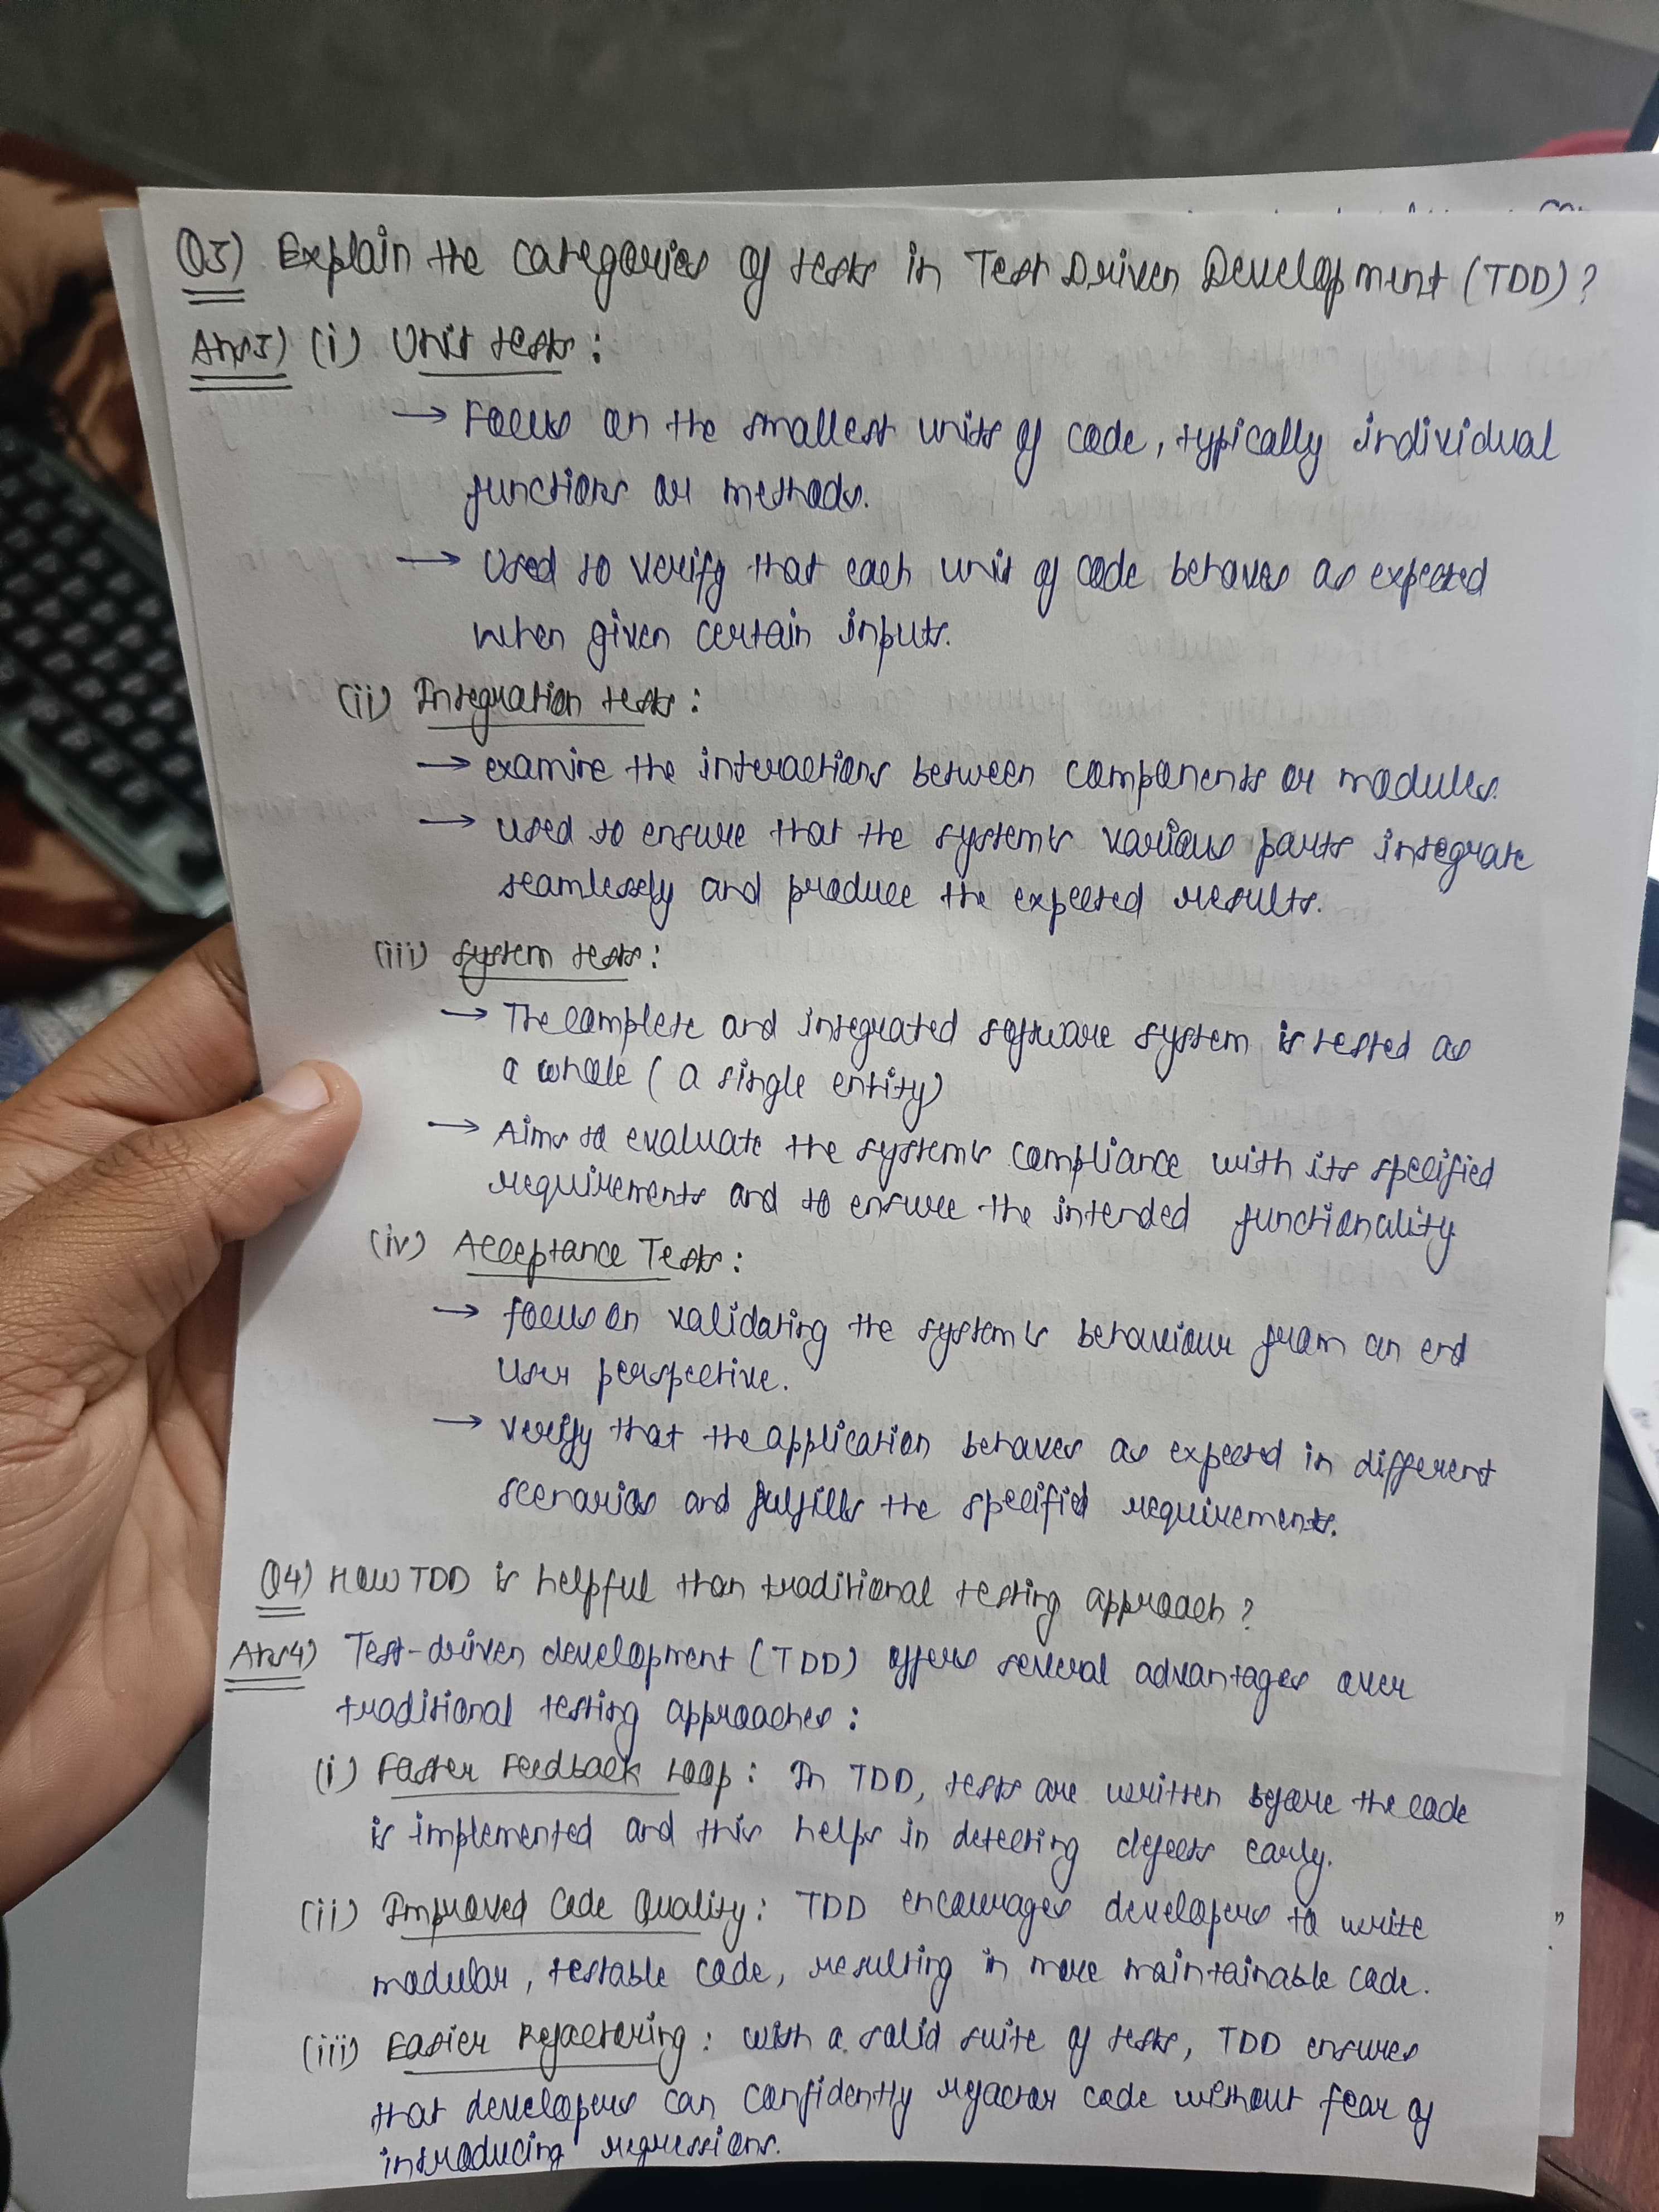 Q3) Explain the categories of tests in Test Driven Development (TDD)?
Ans3) (i) Unit tests:
→ Focus on the smallest units of code, typically individual
functions or methods.
→ Used to verify that each unit of code behaves as expected
when given certain inputs.
(ii) Integration tests:
→ examine the interactions between components or modules.
→ used to ensure that the system's various parts integrate
seamlessly and produce the expected results.
(iii) System tests:
→ The complete and integrated software system is tested as
a whole (a single entity)
→ Aims to evaluate the system's compliance with its specified
requirements and to ensure the intended functionality.
(iv) Acceptance Tests:
→ focus on validating the system's behaviour from an end
user perspective.
→ verify that the application behaves as expected in different
scenarios and fulfills the specified requirements.
Q4) How TDD is helpful than traditional testing approach?
Ans4) Test-driven development (TDD) offers several advantages over
traditional testing approaches:
(i) Faster Feedback Loop: In TDD, tests are written before the code
is implemented and this helps in detecting defects early.
(ii) Improved Code Quality: TDD encourages developers to write
modular, testable code, resulting in more maintainable code.
(iii) Easier Refactoring: with a solid suite of tests, TDD ensures
that developers can confidently refactor code without fear of
introducing regressions.